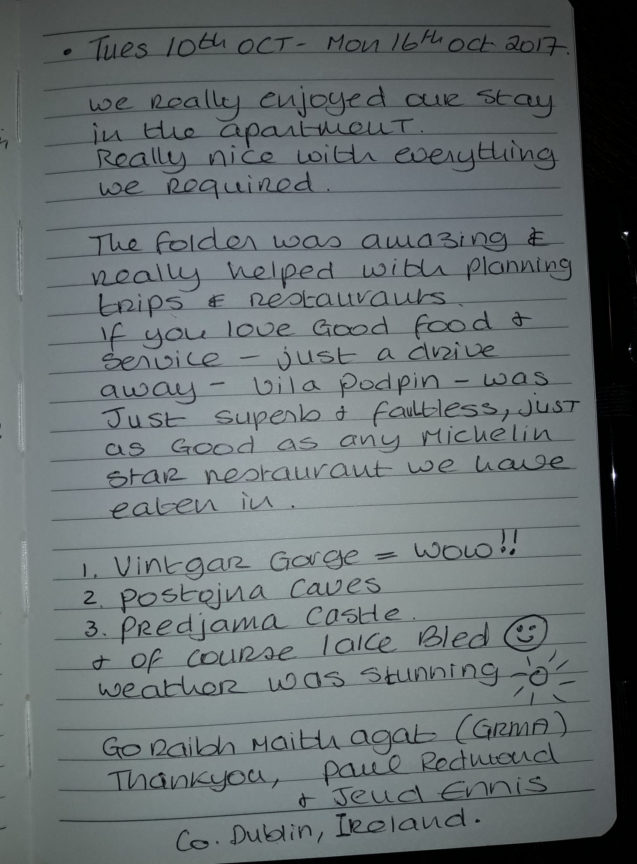 • Tues 10th OCT - Mon 16th Oct 2017.
we Really enjoyed our stay
in the apartment.
Really nice with everything
we Required.
The folder was amazing &
really helped with planning
trips & restaurants.
If you love Good food &
Service - just a drive
away - Vila Podpin - was
Just superb & faultless, just
as Good as any Michelin
star restaurant we have
eaten in.
1. Vintgar Gorge = Wow!!
2. Postojna Caves
3. Predjama Castle.
& of course lake Bled
weather was stunning
Go Raibh Maith agat (GRMA)
Thankyou, Paul Redmond
& Ennis
Co. Dublin, Ireland.